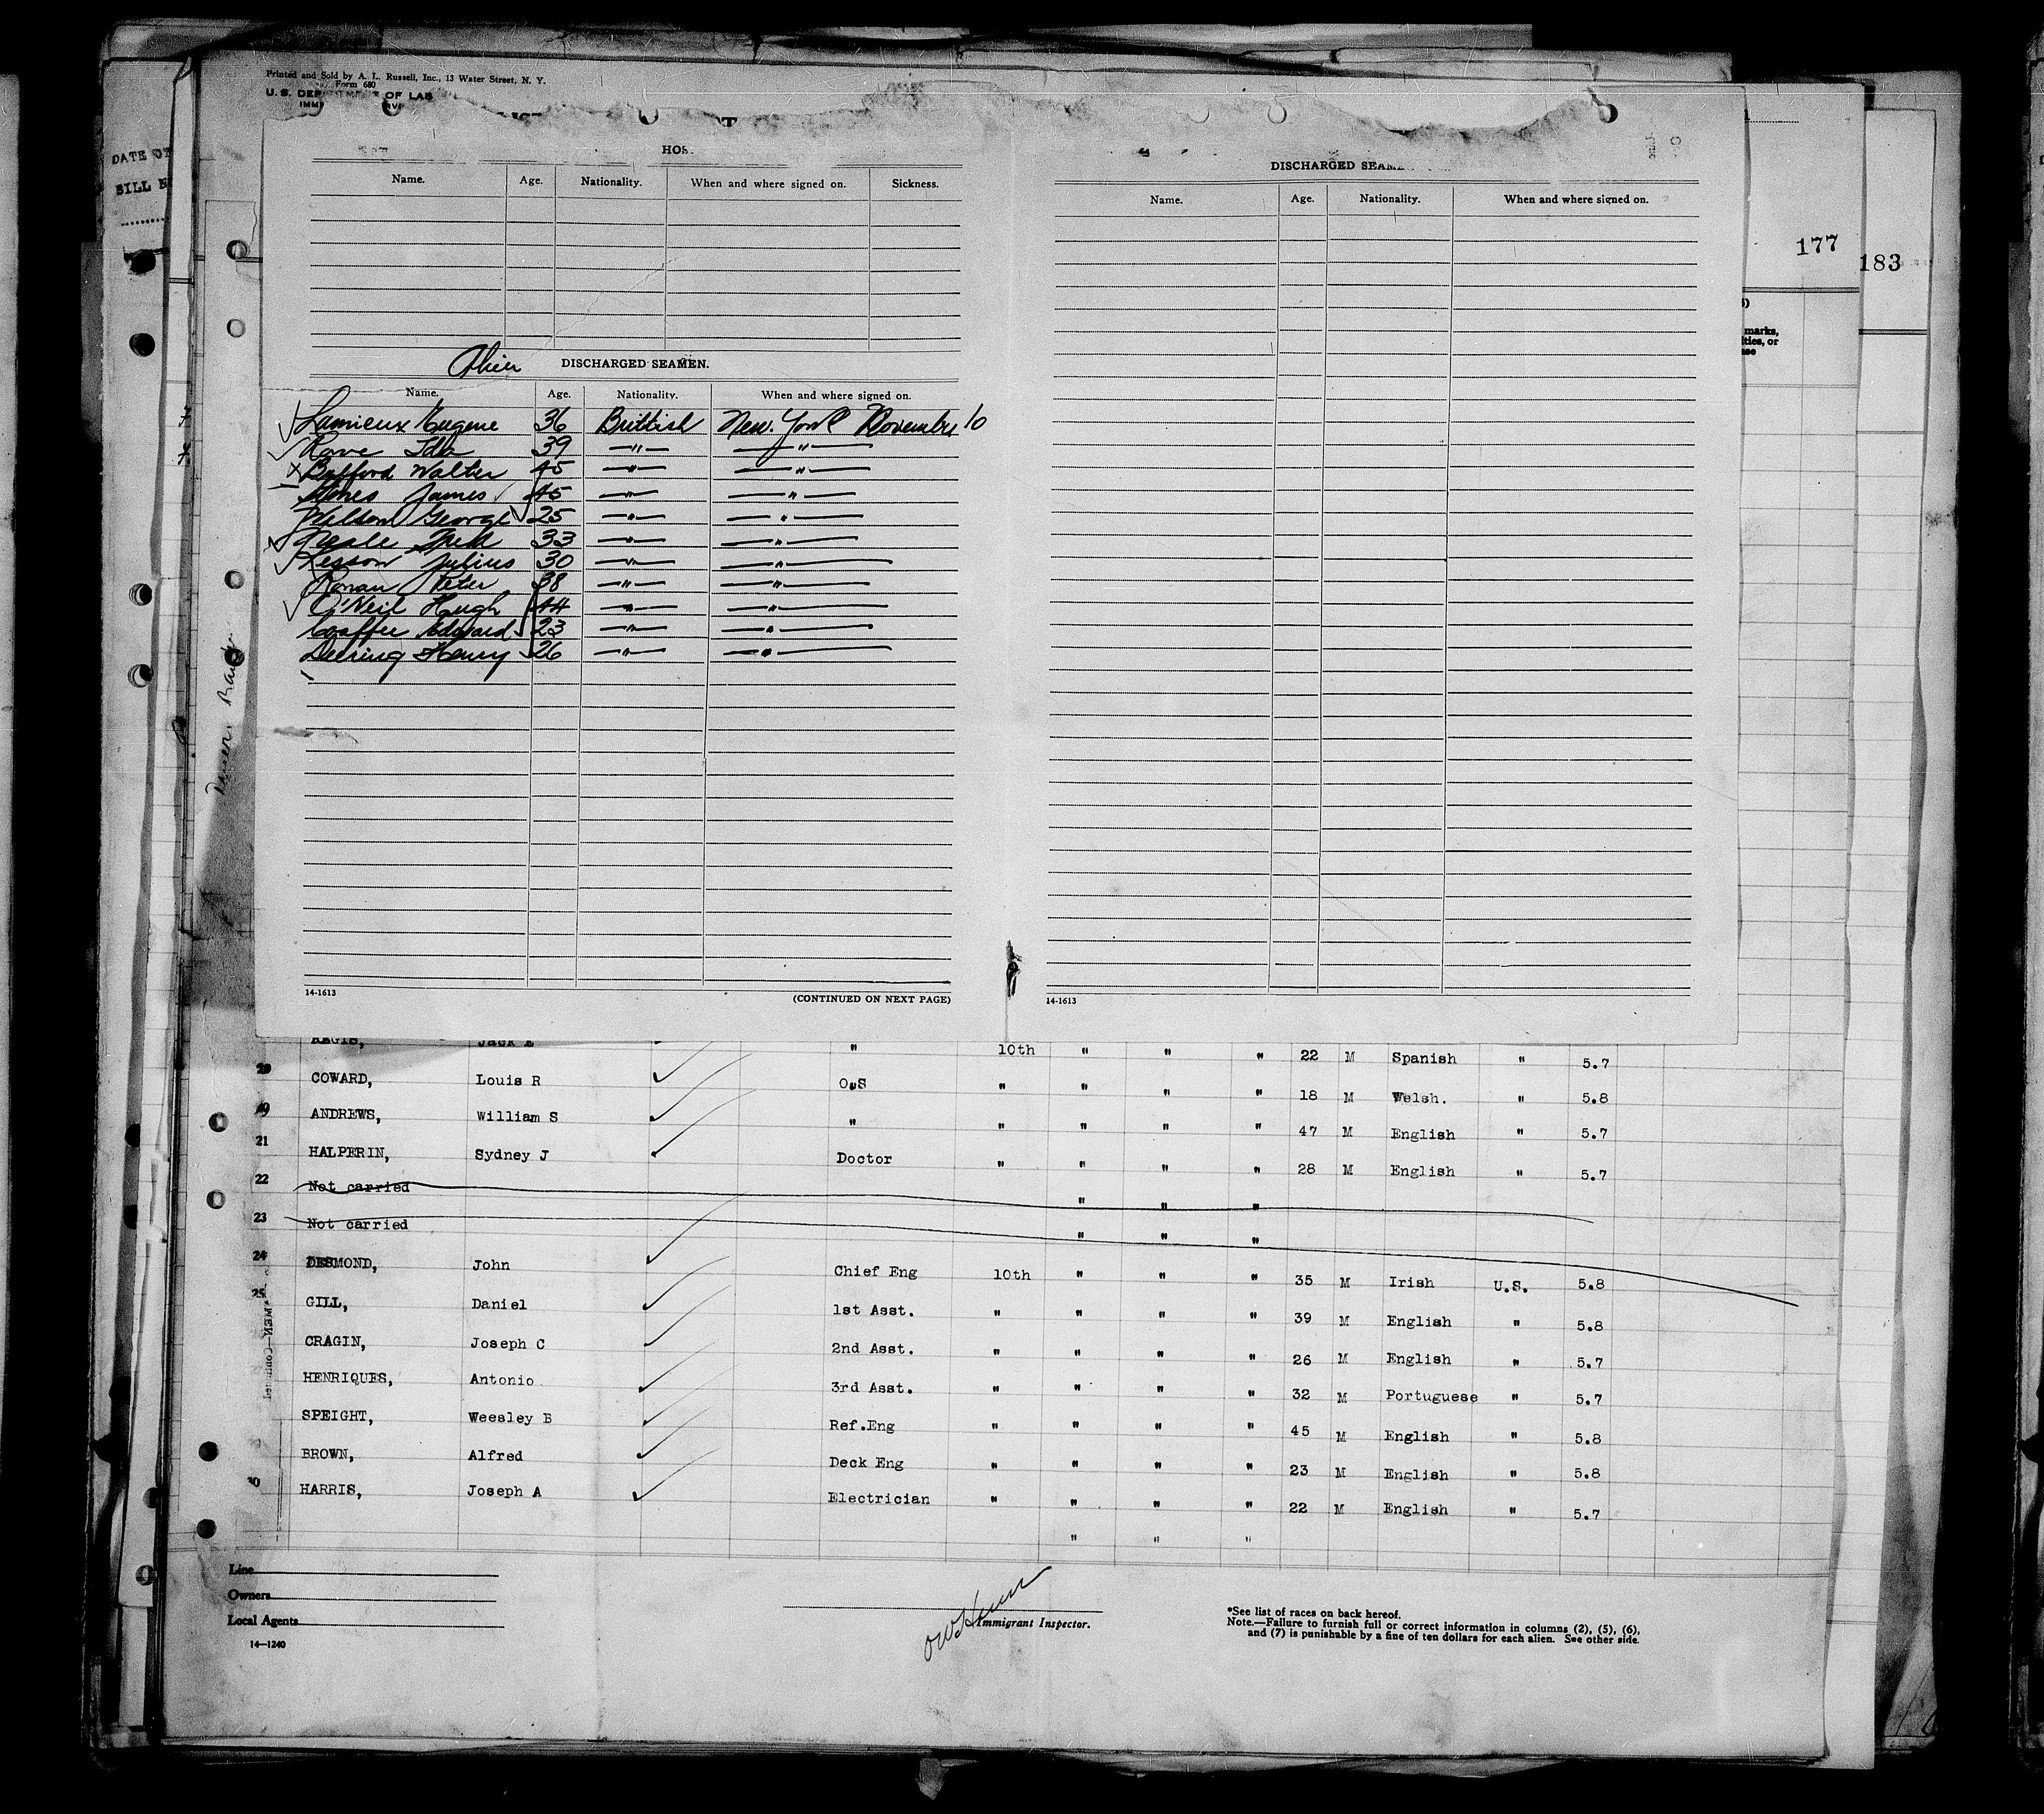 Printed and Sold by A. L. Russell, Inc., 13 Water Street, N. Y.
Form 680
U. S. DEP OF LAB
DATE OF
BILL N
177
183
HOS
Name. Age. Nationality. When and where signed on. Sickness.
Alien DISCHARGED SEAMEN.
Name. Age. Nationality. When and where signed on.
Lamieux Eugene 36 Brittish New. York November 10
Rowe 39 " "
Bufford Walter 45 " "
James 45 " "
Wilson George 25 " "
33 " "
Julius 30 " "
Ronan Peter 38 " "
O'Neil Hugh 44 " "
Edward 23 " "
Deering Henry 26 " "
14-1613
(CONTINUED ON NEXT PAGE)
DISCHARGED SEAME
Name. Age. Nationality. When and where signed on.
14-1613
marks,
ities, or
REGIS, Jack E " 10th " " " 22 M Spanish " 5.7
20 COWARD, Louis R O.S " " " " 18 M Welsh. " 5.8
19 ANDREWS, William S " " " " " 47 M English " 5.7
21 HALPERIN, Sydney J Doctor " " " " 28 M English " 5.7
22 Not carried " " "
23 Not carried " " "
24 DESMOND, John Chief Eng 10th " " " 35 M Irish U.S. 5.8
25 GILL, Daniel 1st Asst. " " " " 39 M English " 5.8
CRAGIN, Joseph C 2nd Asst. " " " " 26 M English " 5.7
HENRIQUES, Antonio 3rd Asst. " " " " 32 M Portuguese " 5.7
SPEIGHT, Weesley B Ref.Eng " " " " 45 M English " 5.8
BROWN, Alfred Deck Eng " " " " 23 M English " 5.8
HARRIS, Joseph A Electrician " " " " 22 M English " 5.7
" " "
Line
Owners
Local Agents
14—1240
Immigrant Inspector.
*See list of races on back hereof.
Note.—Failure to furnish full or correct information in columns (2), (5), (6),
and (7) is punishable by a fine of ten dollars for each alien. See other side.